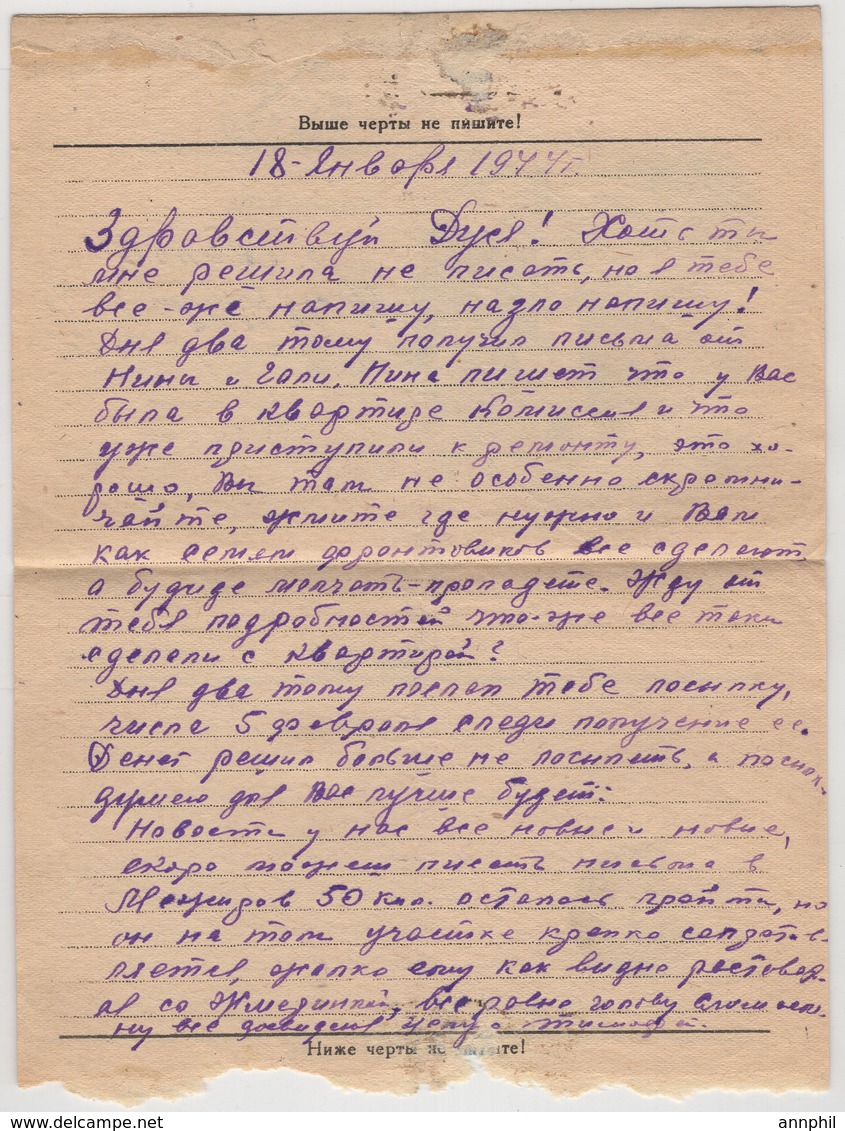 Выше черты не пишите!
18-Января 1944г.
Здравствуй Дуся! Хоть ты
мне решила не писать, но я тебе
все-же напишу, назло напишу!
Дня два тому получил письма от
Нины и Гали. Нина пишет что у Вас
была в квартире комиссия и что
уже приступили к ремонту, это хо-
рошо, Вы там не особенно скромни-
чайте, жмите где нужно и Вам
как семьи фронтовиков все сделают,
а будиде молчать-пропадете. Жду от
тебя подробностей что-же все таки
сделали с квартирой?
Дня два тому послал тебе посылку,
числа 5 февраля следи получение ее.
Денег решил больше не посылать, а посылк.
думаю для Вас лучше будет.
Новости у нас все новые и новые,
скоро можеш писать письма в
50 км. осталось пройти, но
он на том участке крепко сопротив-
ляется, жалко ему как видно расстоват-
ся со Жмеринкой, все равно голову сломаем
ну все
Ниже черты не пишите!
annphil